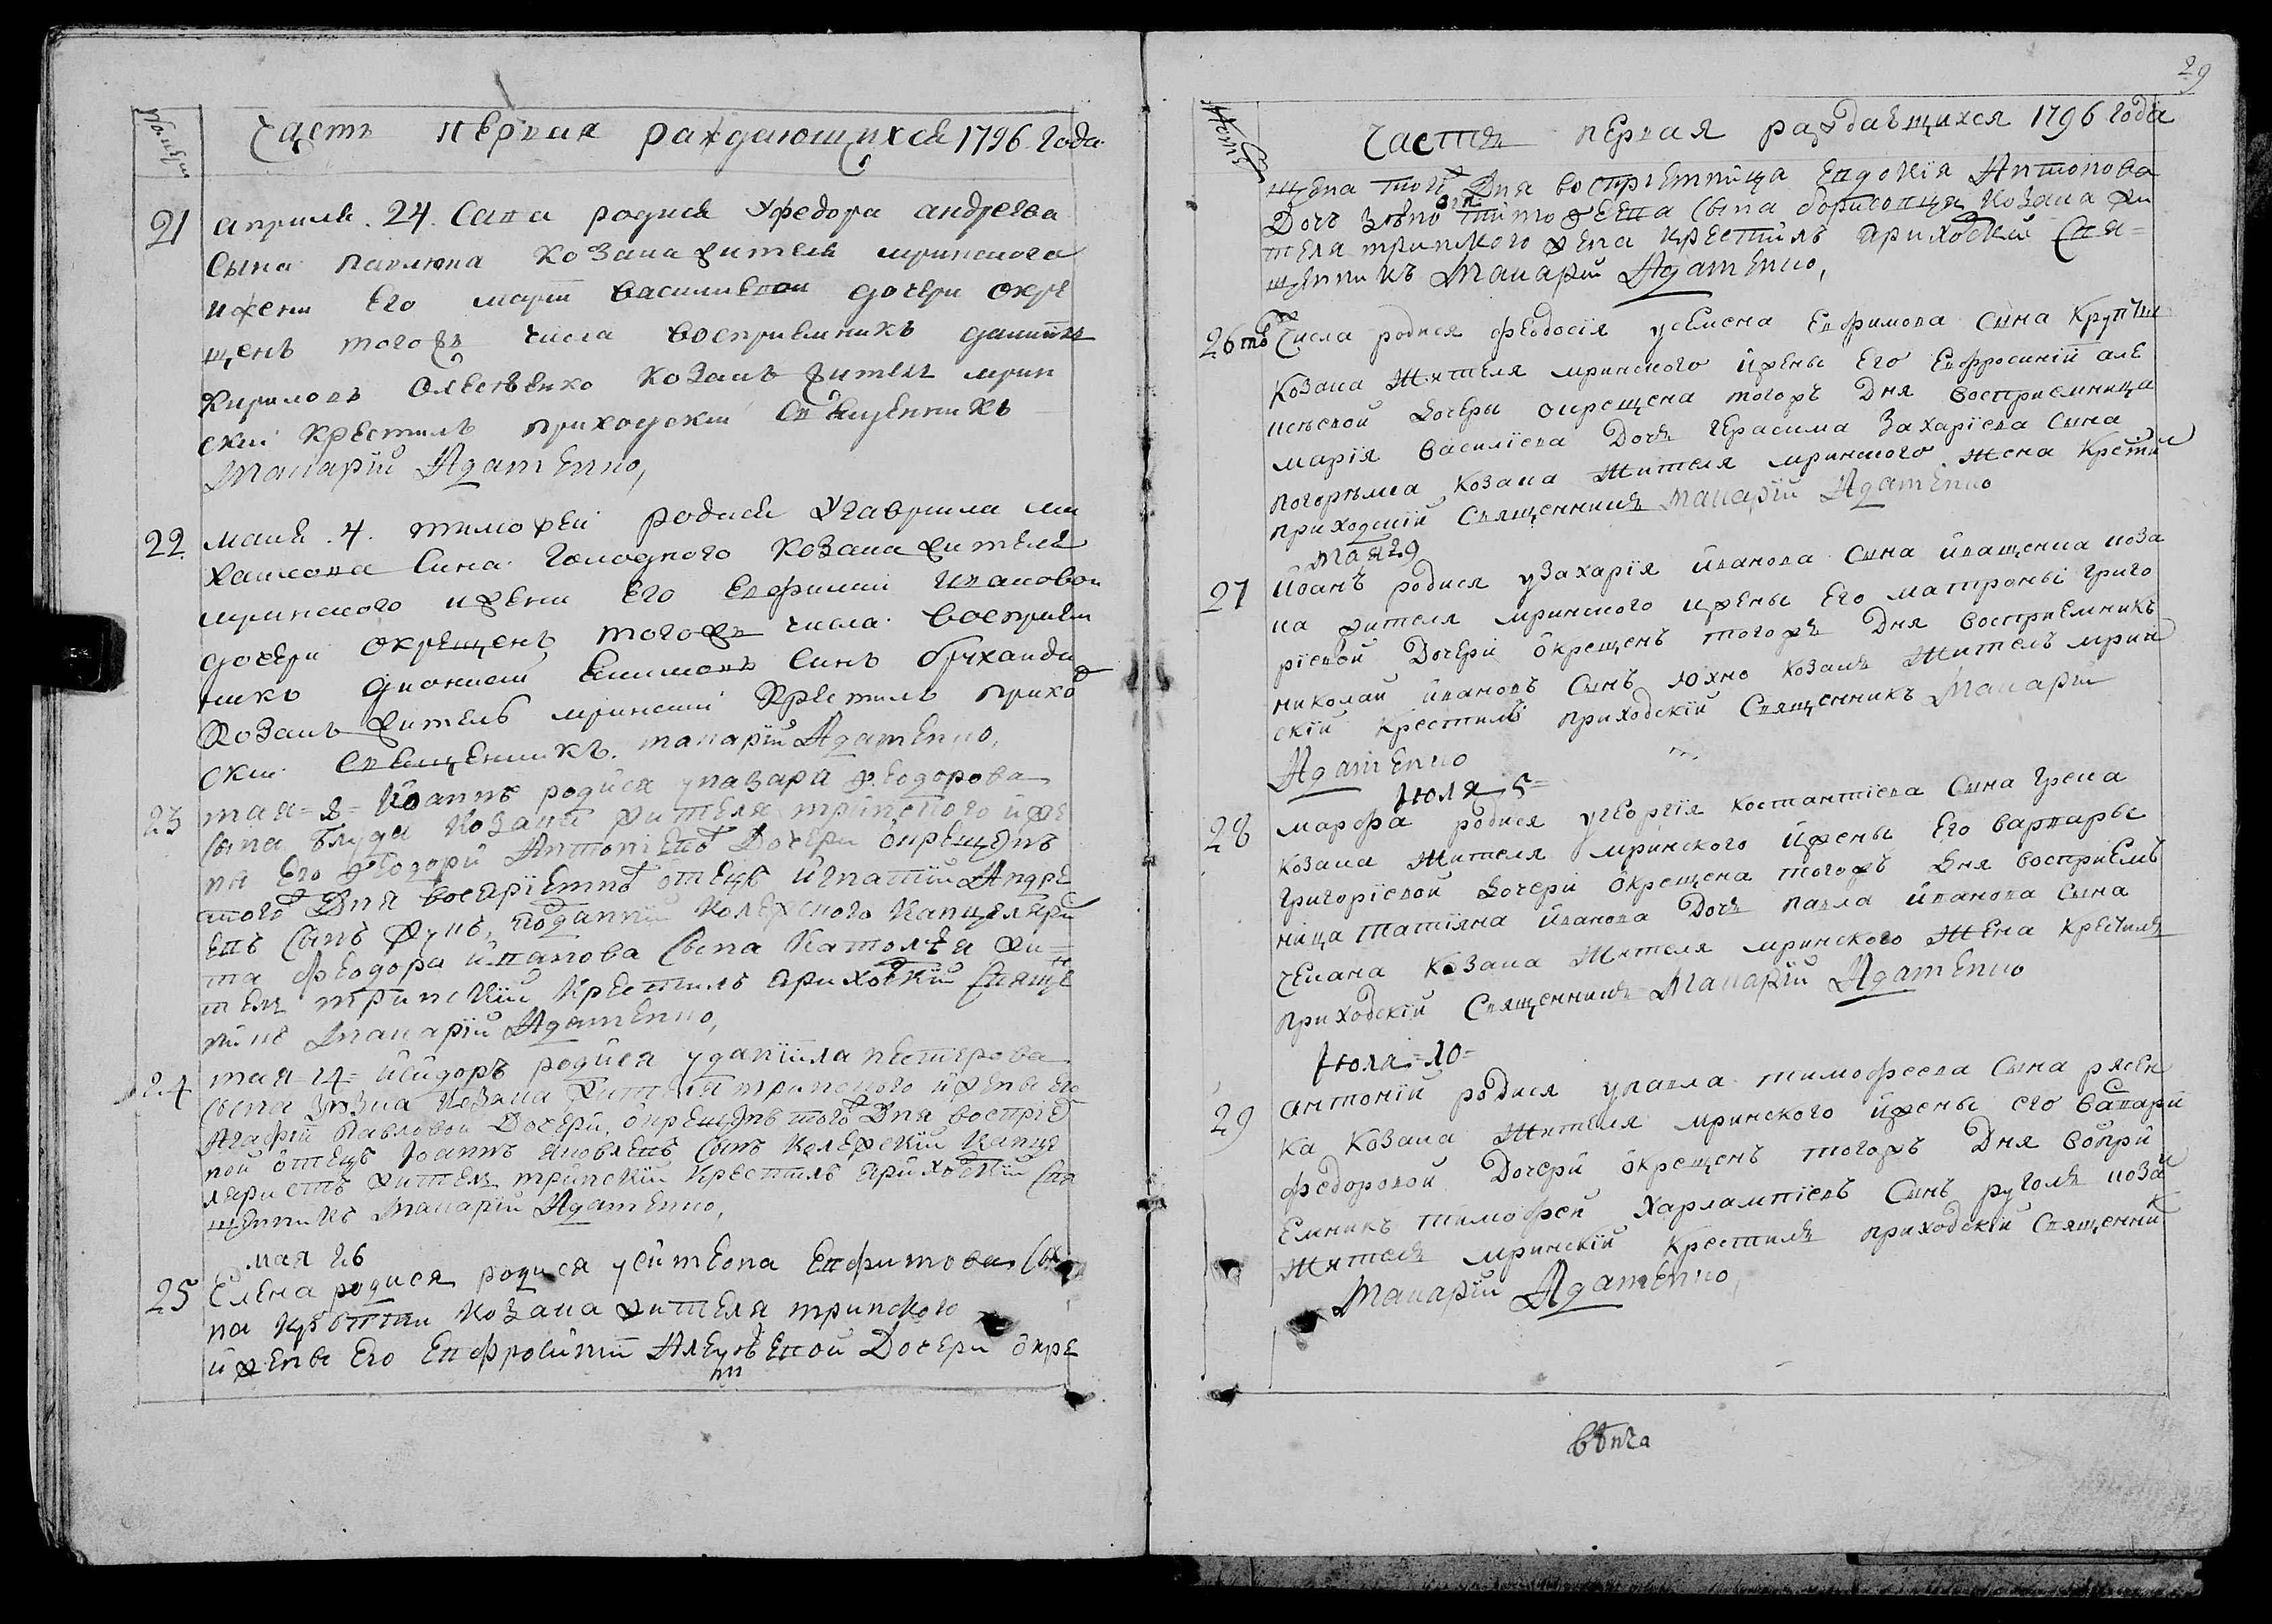 Номеръ
Часть первая раждающихся 1796 года
21
априля 24 Сава родися У федора андреева
Сына павлюка козака жителя мринского
и жени его марїи василиевой дочери окре
щенъ тогожъ числа восприемникъ данїилъ
Кириловъ козакъ житель мрин
скій крестилъ приходскій священникъ
Макарїй Адаменко,
22
мая 4 тимофей родися У гаврила ми
хайлова Сина Голодного козака жителя
мринского и жени его евфиміи ивановой
дочери окрещенъ тогожъ числа восприем
никъ дионисій Синъ
козакъ житель мринскій крестилъ приход
скій священникъ макарїй Адаменко,
23
мая = 8 = Їоаннъ родися у назарїя феодорова
сына козака жителя мринского и же
ны его феодорїи Антонїевой Дочери окрещенъ
того Дня воспрїемной отецъ игнатїй Андре
евъ сынъ жукъ, коллежского канцеляри
ста феодора иванова сына жи=
тель мринскїй крестилъ приходскїй священ
никъ Макарїй Адаменко,
24
мая 14 = исидоръ родися у данїила нестерова
сына козака жителя мринского и жены его
Агафїи Павловой Дочери, окрещенъ того Дня воспрїем
ной отецъ Їоаннъ яковлевъ сынъ коллежскїй канце
ляристъ житель мринскїй крестилъ приходскїй свя
щенникъ Макарїй Адаменко,
мая 26
25
Елена родися родися у симеона Евфимова сы
на козака жителя мринского
и жены его Евфросинїи Алексѣевой Дочери окре
29
Номеръ
Часть первая раждающихся 1796 года
щена той Дня воспрїемница Евдокїя Антонова
Дочь тимофеева сына козака жи
теля мринского жена крестилъ приходскїй свя=
щенникъ Макарїй Адаменко,
26 того числа родися феодосїя у семена Евфимова сына
козака жителя мринского и жены его Евфросинїй але
ксѣевой Дочеры окрещена тогожъ Дня восприемница
марїя Василїева Дочь Герасима Захарїева Сына
погорѣлка козака жителя мринского жена крстил
приходскїй Священникъ Макарїй Адаменко
мая 29
27
Иоанъ родися у Захарїя иванова Сина иващенка коза
ка жителя мринского и жены его матроны григо
рїевой Дочерi окрещенъ тогожъ Дня восприемникъ
николай ивановъ Сынъ юхно козакъ житель мрин
скїй крестилъ приходскїй Священникъ Макарїй
Адаменко
Iюля 5 =
28
марфа родися у георгїя костантїева Сына Грека
козака жителя мринского и жены его варвары
Григорїевой Дочерi окрещена тогожъ Дня восприем
ница татїяна иванова Дочь павла иванова Сына
козака жителя мринского жена крестилъ
приходскїй Священникъ Макарїй Адаменко
Iюля = 10 =
29
антонїй родися у павла тимофеева Сына рясен
ка козака жителя мринского и жены его васарїи
федоровой Дочерй окрещенъ тогожъ Дня воспри
емникъ тимофей Харлампїевъ Сынъ руголь коза
житель мринскїй крестилъ приходскїй Священник
Макарїй Адаменко,